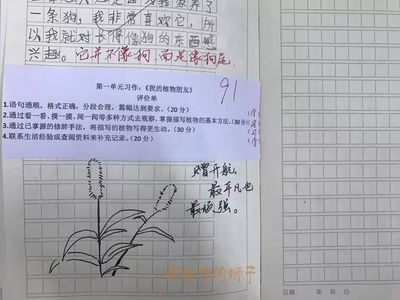 一条狗，我非常喜欢它，所
以我就对长得像狗的东西感
兴趣。它并不像狗，而是像狗尾。
第一单元习作：《我的植物朋友》
评价单
91
1.语句通顺，格式正确，分段合理，篇幅达到要求。（20分）
2.通过看一看、摸一摸、闻一闻等多种方式去观察，掌握描写植物的基本方法。（30分）
3.通过已掌握的修辞手法，将描写的植物写得更生动。（30分）
4.联系生活经验或查阅资料来补充记录。（20分）
赠开航
最平凡也
最顽强。
日期： 年 月 日